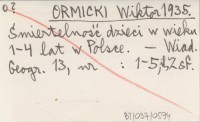 o.?
ORMICKI Wiktor 1935.
Śmiertelność dzieci w wieku
1-4 lat w Polsce. — Wiad.
Geogr. 13, nr : 1-5,
BY/037/0594